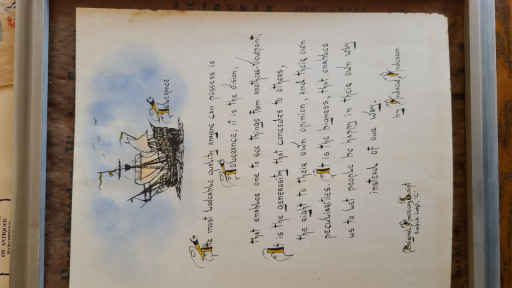 Tolerance
The most lovable quality anyone can possess is
Tolerance, it is the vision,
that enables one to see things from another viewpoint,
It is the generosity that concedes to others,
the right to their own opinion, and their own
peculiarities. It is the bigness, that enables
us to let people be happy in their own way
instead of our way.
by